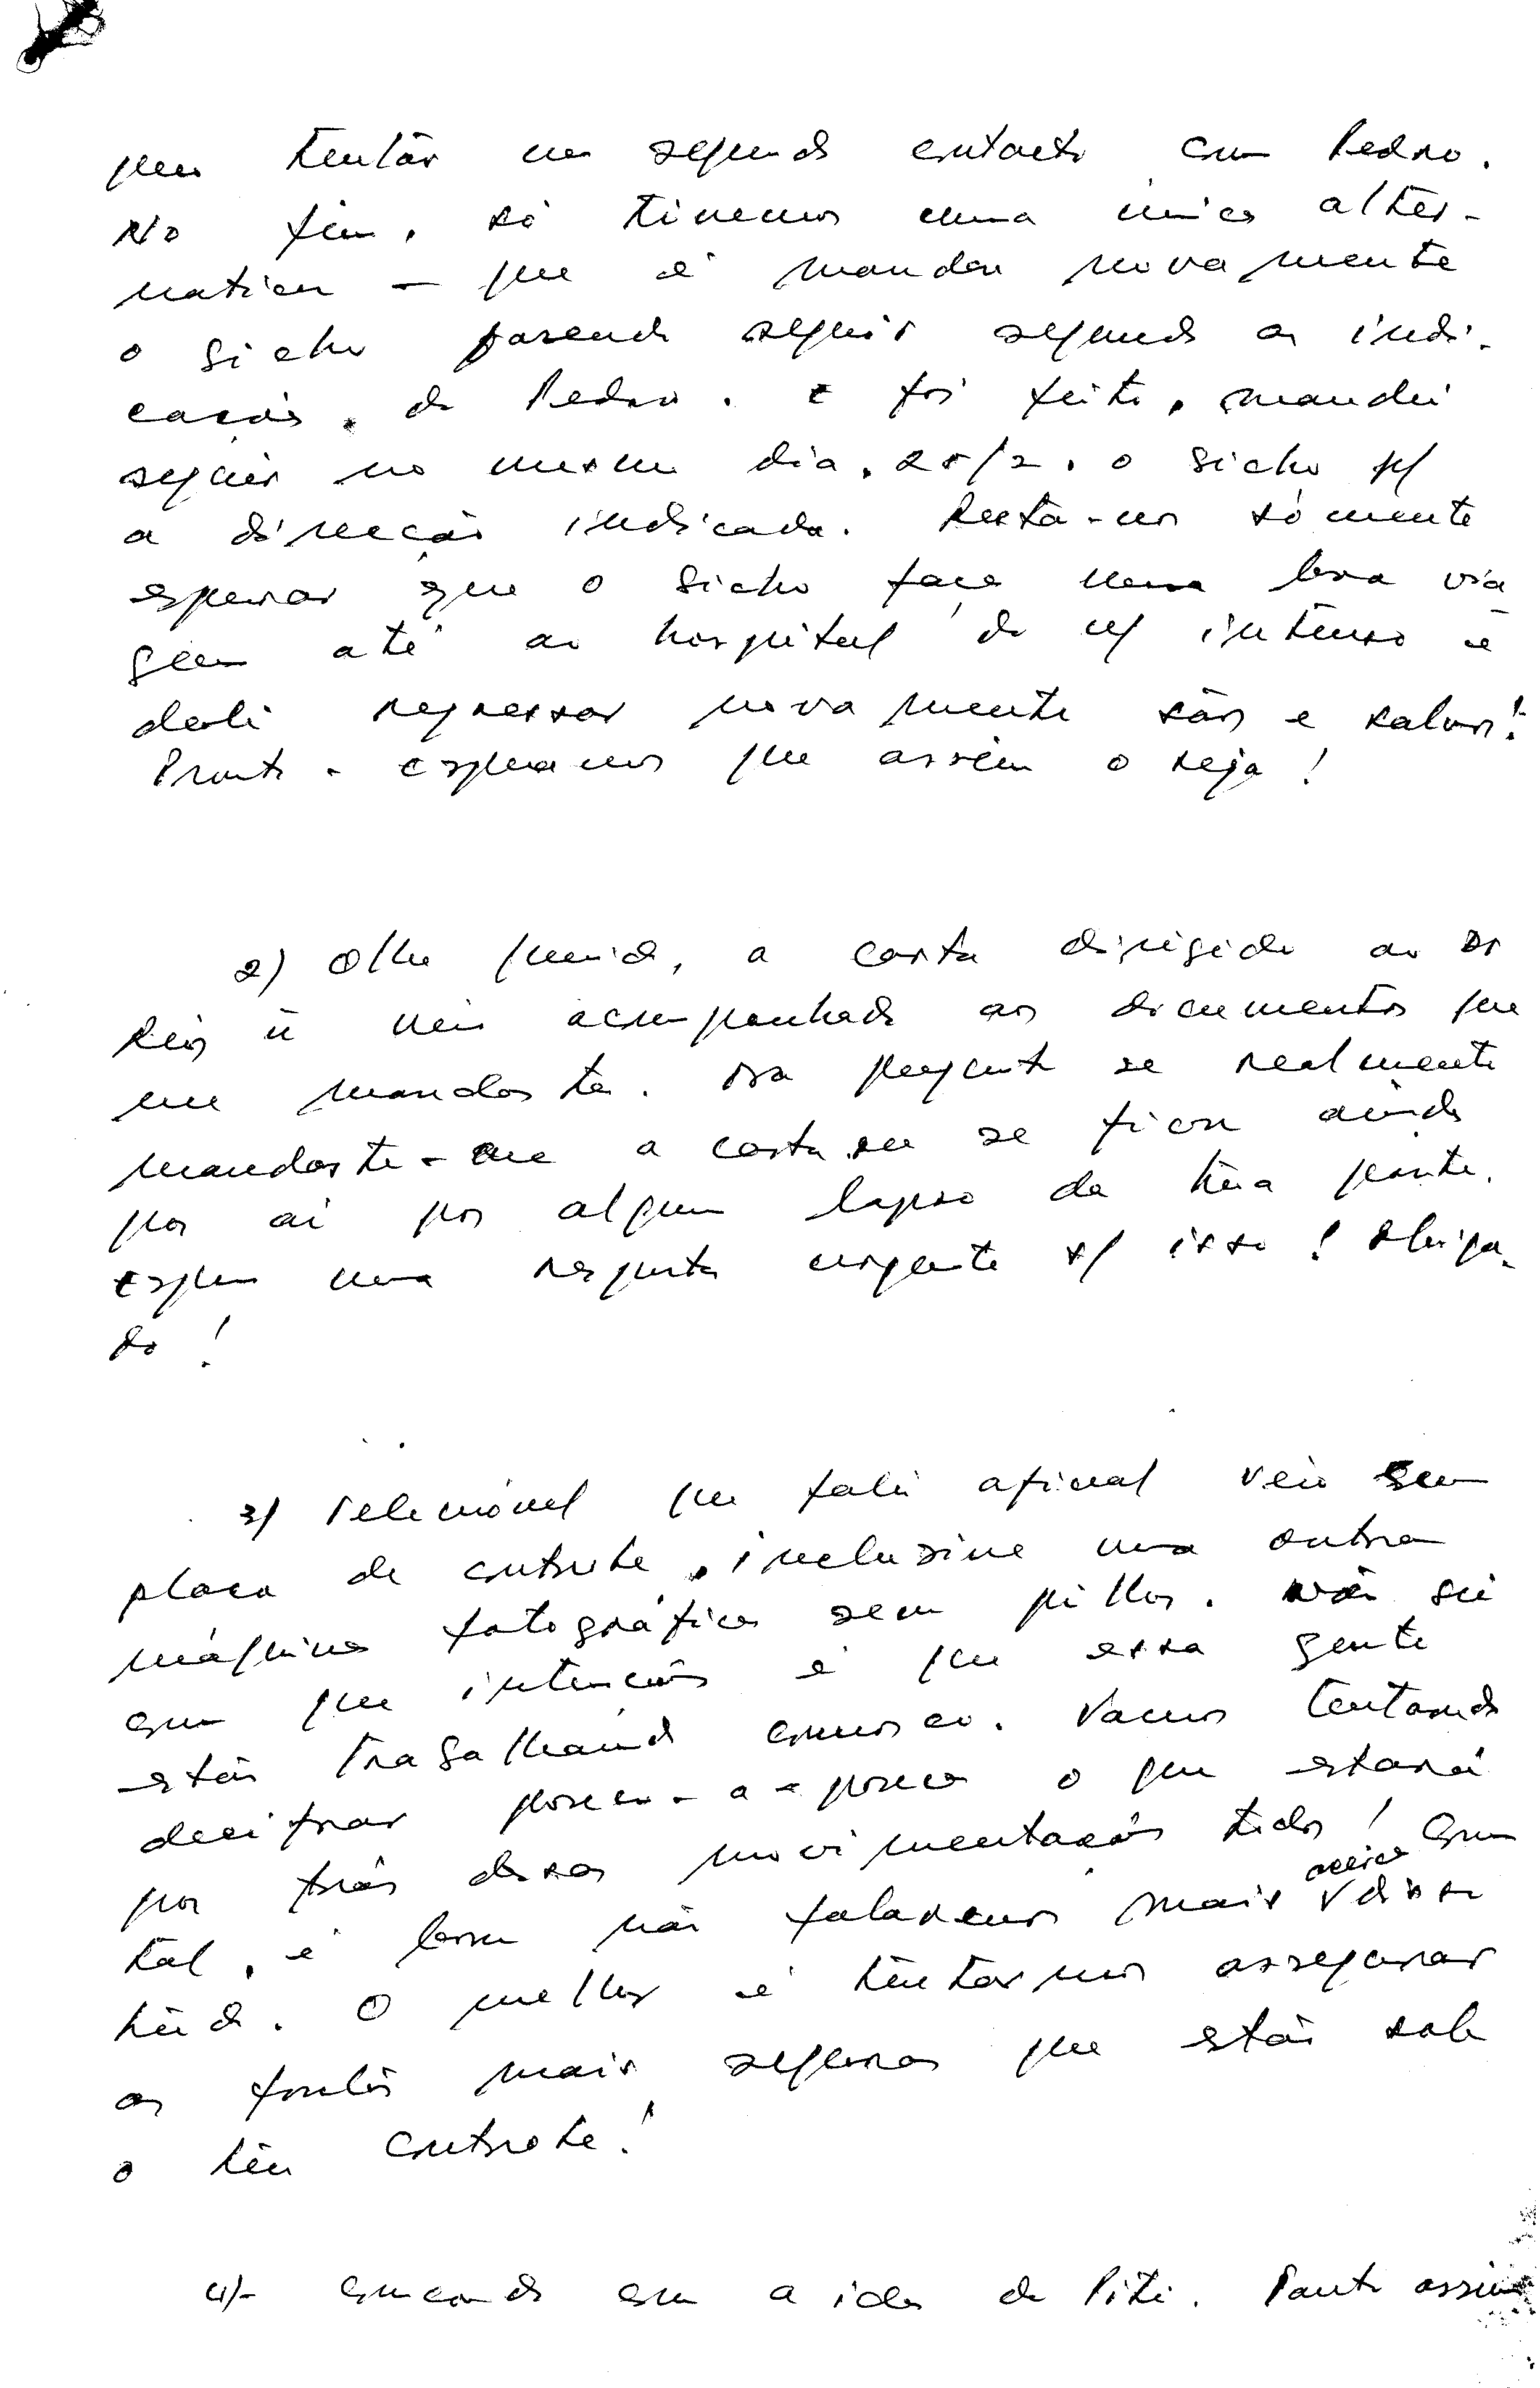 para tentar um segundo contacto com Pedro.
No fim, só tivemos uma única alter-
nativa - que é mandar novamente
o bicho fazendo seguir segundo as indi-
cações do Pedro. E foi feito, mandei
seguir no mesmo dia, 25/2, o bicho p/
a direcção indicada. Resta-nos sòmente
esperar que o bicho faça uma boa via
gem até ao hospital do c/ intenso e
dali regressar novamente são e salvo!
Pronto - esperamos que assim o seja!
2) Olhe querido, a carta dirigida ao Dr
Reis ñ veio acompanhado aos documentos que
me mandaste. Ora pergunto se realmente
mandaste-me a carta ou se ficou ainda
por aí por algum lapso da tua parte.
Espero uma resposta urgente s/ isso! Obriga-
do!
3) Telemóvel que falei afinal veio sem
placa de controle, inclusive uma outra
máquina fotográfica sem pilhas. Não sei
com que intenções é que essa gente
estão trabalhando connosco. Vamos tentando
decifrar pouco-a-pouco o que estará
por trás dessas movimentações todas! Com
tal, é bom não falarmos mais acerca disso
tudo. O melhor é tentarmos assegurar
as fontes mais seguras que estão sob
o teu controle!
4)- Concordo com a ida do Piti. Tanto assim